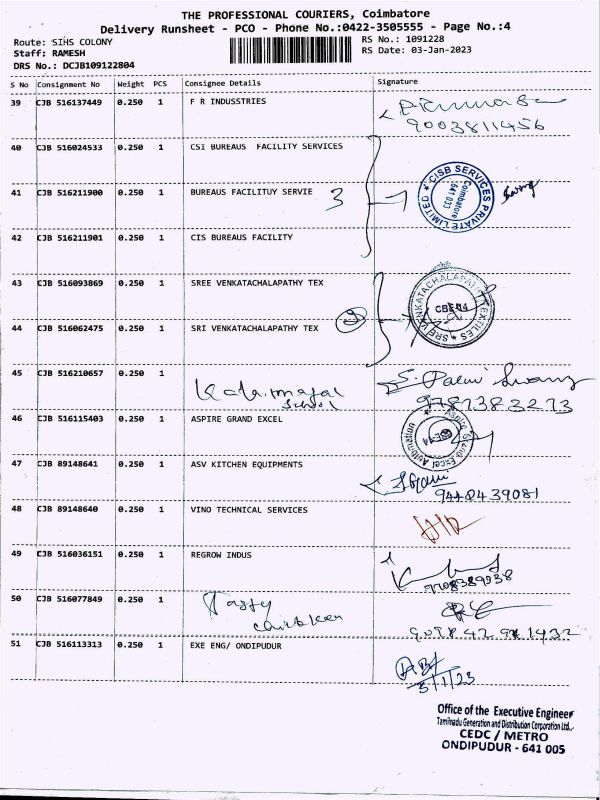 THE PROFESSIONAL COURIERS, Coimbatore
Delivery Runsheet - PCO - Phone No.:0422-3505555 - Page No.:4
Route: SIHS COLONY
Staff: RAMESH
DRS No.: DCJB109122804
RS No.: 1091228
RS Date: 03-Jan-2023
S No Consignment No Weight PCS Consignee Details Signature
39 CJB 516137449 0.250 1 F R INDUSSTRIES
9003811456
40 CJB 516024533 0.250 1 CSI BUREAUS FACILITY SERVICES
41 CJB 516211900 0.250 1 BUREAUS FACILITUY SERVIE 3
CISB SERVICES PRIVATE LIMITED
Coimbatore
641 033
42 CJB 516211901 0.250 1 CIS BUREAUS FACILITY
43 CJB 516093869 0.250 1 SREE VENKATACHALAPATHY TEX
SREE VENKATACHALAPATHY TEXTILES
CBE-14
44 CJB 516062475 0.250 1 SRI VENKATACHALAPATHY TEX 2
45 CJB 516210657 0.250 1
School
9787383273
46 CJB 516115403 0.250 1 ASPIRE GRAND EXCEL
Aspire Grand Excel Automation
47 CJB 89148641 0.250 1 ASV KITCHEN EQUIPMENTS
9440439081
48 CJB 89148640 0.250 1 VINO TECHNICAL SERVICES
49 CJB 516036151 0.250 1 REGROW INDUS
50 CJB 516077849 0.250 1 Tasty
51 CJB 516113313 0.250 1 EXE ENG/ ONDIPUDUR
3/1/23
Office of the Executive Engineer
Tamilnadu Generation and Distribution Corporation Ltd.,
CEDC / METRO
ONDIPUDUR - 641 005